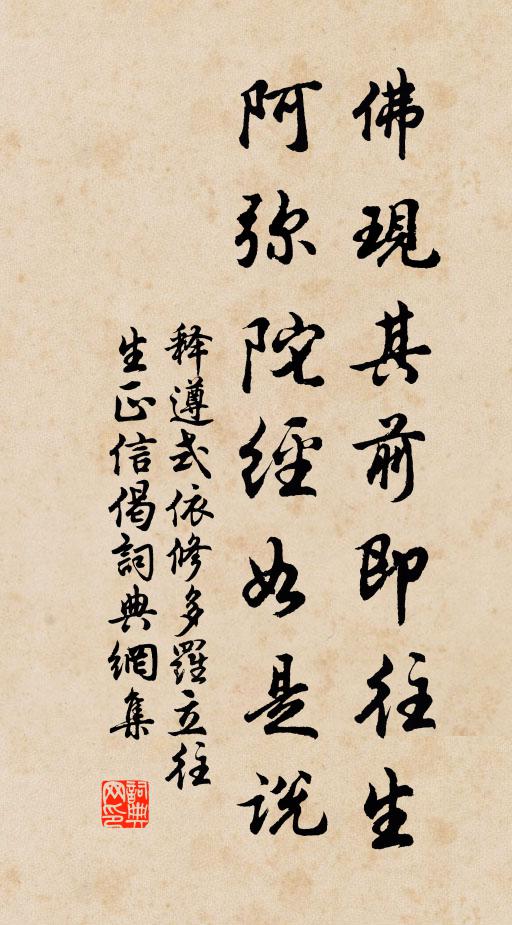 佛現其前即往生
阿弥陀經如是説
释遵式依修多羅立往
生正信偈詞典網集
詞典
网印